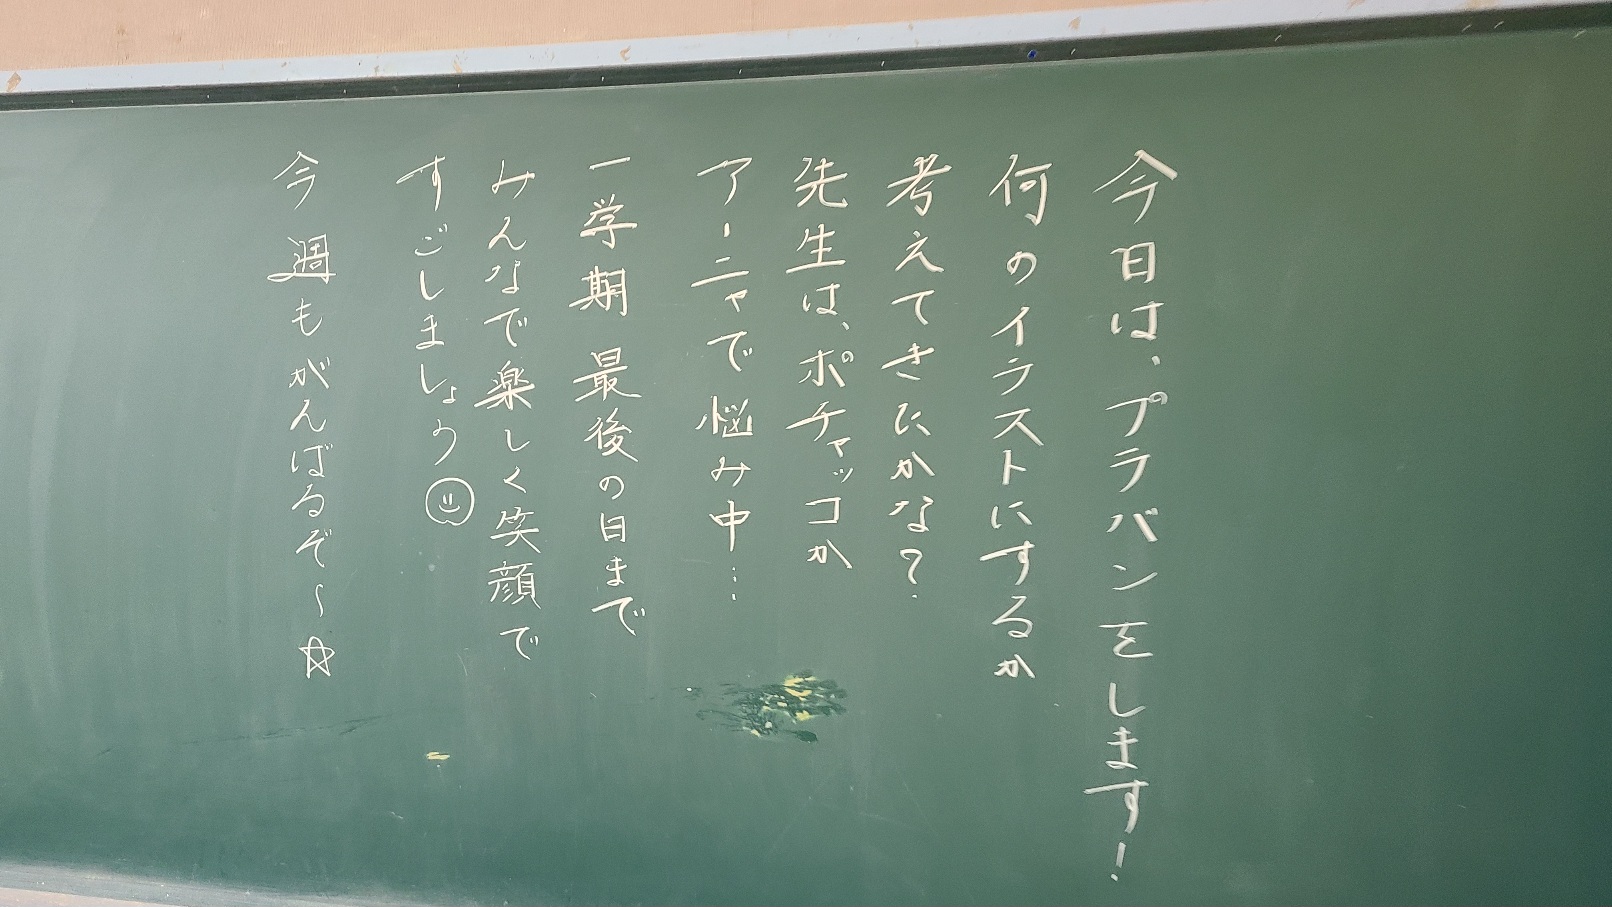 今日は、プラバンをします!
何のイラストにするか
考えてきたかな?
先生は、ポチャッコか
アーニャで悩み中…
一学期最後の日まで
みんなで楽しく笑顔で
すごしましょう
今週もがんばるぞ〜☆